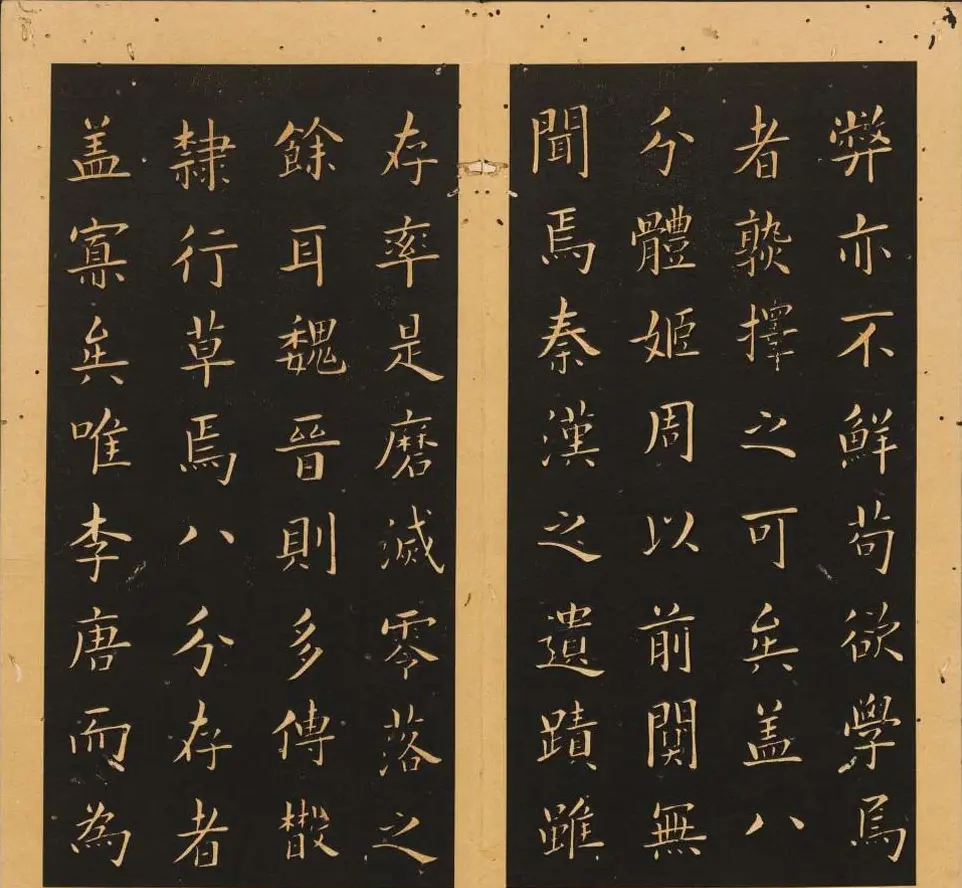 弊亦不鮮苟欲学焉
者熟擇之可矣盖八
分體姬周以前闃無
聞焉秦漢之遺蹟雖
存率是磨滅零落之
餘耳魏晉則多傳散
隷行草焉八分存者
盖寡矣唯李唐而為